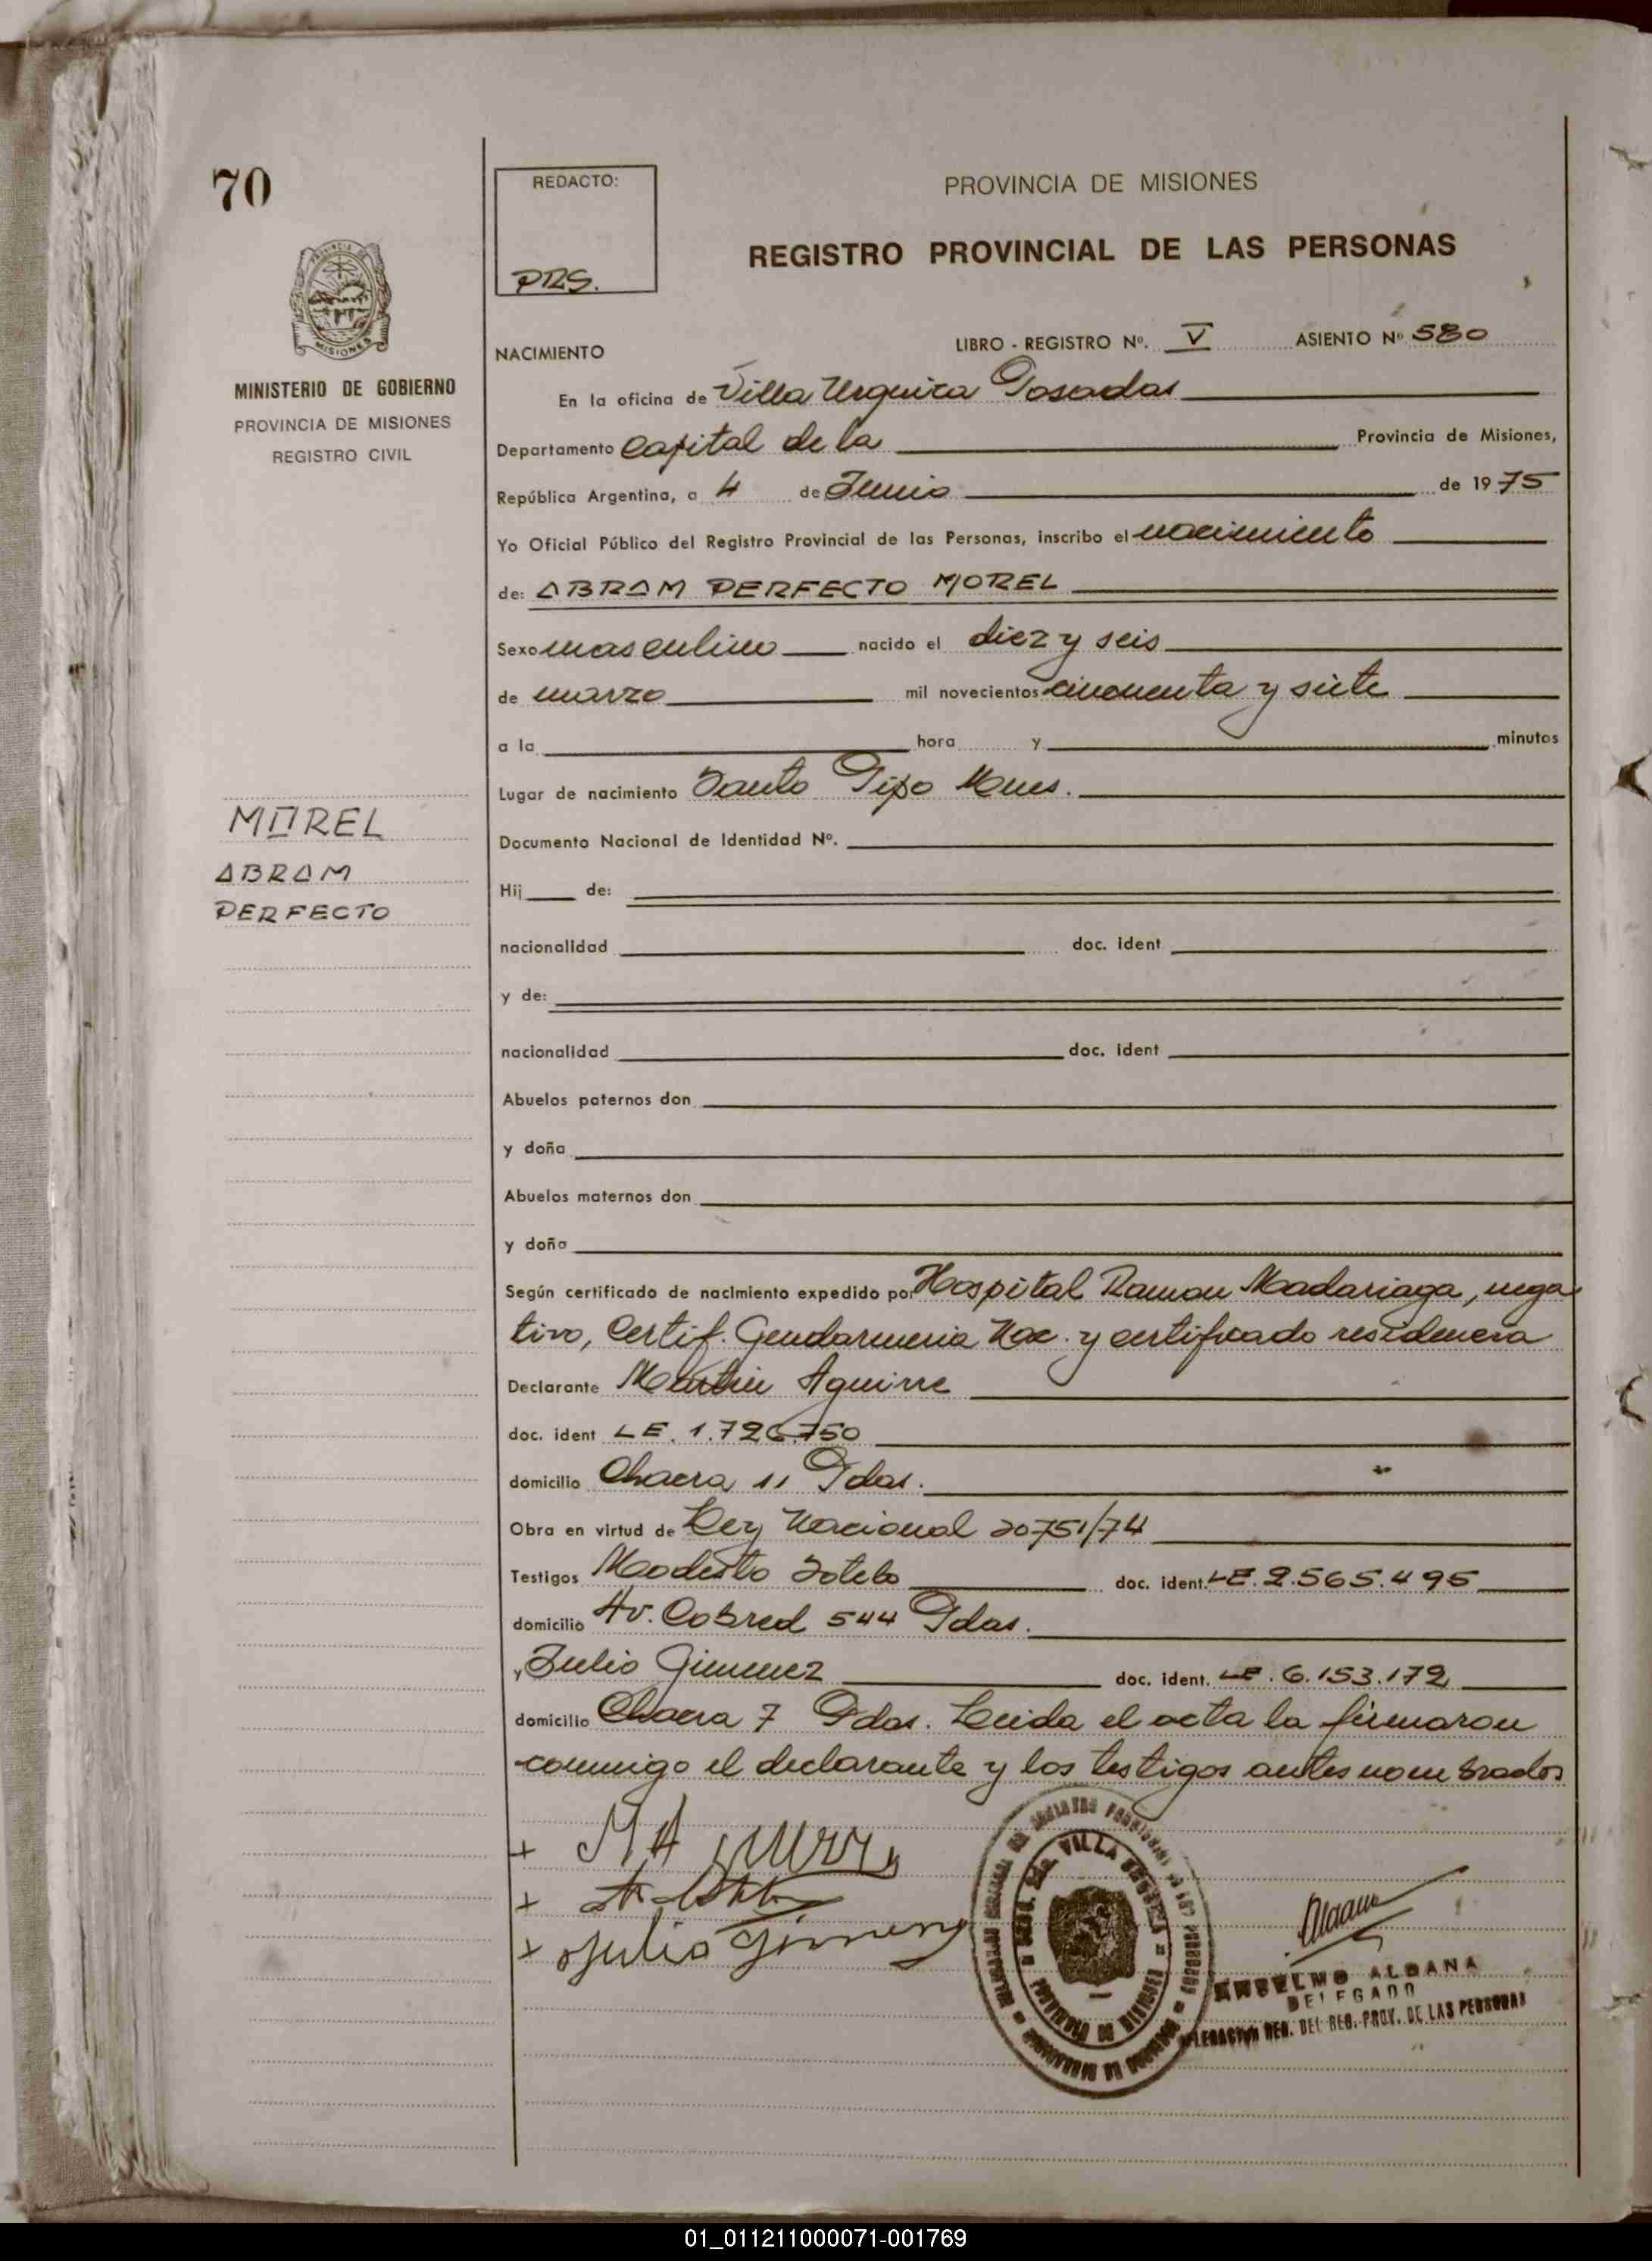 70
REDACTO:
PRS.
PROVINCIA DE MISIONES
REGISTRO PROVINCIAL DE LAS PERSONAS
MISIONES
MINISTERIO DE GOBIERNO
PROVINCIA DE MISIONES
REGISTRO CIVIL
NACIMIENTO
LIBRO - REGISTRO Nº. V ASIENTO Nº 580
En la oficina de Villa Urquiza Posadas
Departamento Capital de la Provincia de Misiones,
República Argentina, a 4 de Junio de 1975
Yo Oficial Público del Registro Provincial de las Personas, inscribo el nacimiento
de: ABRAM PERFECTO MOREL
Sexo masculino nacido el diez y seis
de marzo mil novecientos cincuenta y siete
a la hora y minutos
Lugar de nacimiento Santo Pipo Mnes.
MOREL
ABRAM
PERFECTO
Documento Nacional de Identidad Nº.
Hij de:
nacionalidad doc. ident
y de:
nacionalidad doc. ident
Abuelos paternos don
y doña
Abuelos maternos don
y doña
Según certificado de nacimiento expedido por Hospital Ramon Madariaga, nega
tivo, Certif. Gendarmeria Nac. y certificado residencia
Declarante Martin Aguirre
doc. ident LE. 1.726.750
domicilio Chacra 11 Pdas.
Obra en virtud de Ley Nacional 20751/74
Testigos Modesto Sotelo doc. ident. LE. 2.565.495
domicilio Av. Cabred 544 Pdas.
y Julio Gimenez doc. ident. LE. 6.153.172
domicilio Chacra 7 Pdas. Leida el acta la firmaron
conmigo el declarante y los testigos antes nombrados
+ M A
+
+ Julio Gimenez
VILLA URQUIZA
PROVINCIA DE MISIONES
ANSELMO ALDANA
DELEGADO
DELEGACION REG. DEL REG. PROV. DE LAS PERSONAS
01_011211000071-001769